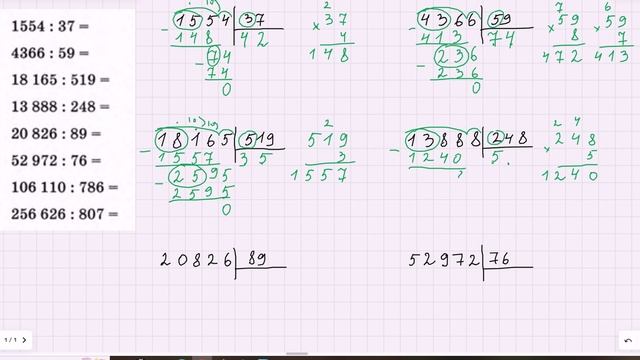 1554 : 37 =
4366 : 59 =
18 165 : 519 =
13 888 : 248 =
20 826 : 89 =
52 972 : 76 =
106 110 : 786 =
256 626 : 807 =
1554 37
- 148 42
- 74
74
0
2
× 37
4
148
4366 59
- 413 74
- 236
236
0
7
× 59
8
472
6
× 59
7
413
18165 519
- 1557 35
- 2595
2595
0
2
519
3
1557
13888 248
- 1240 5.
2 4
× 248
5
1240
20826 89
52972 76
1 / 1 >